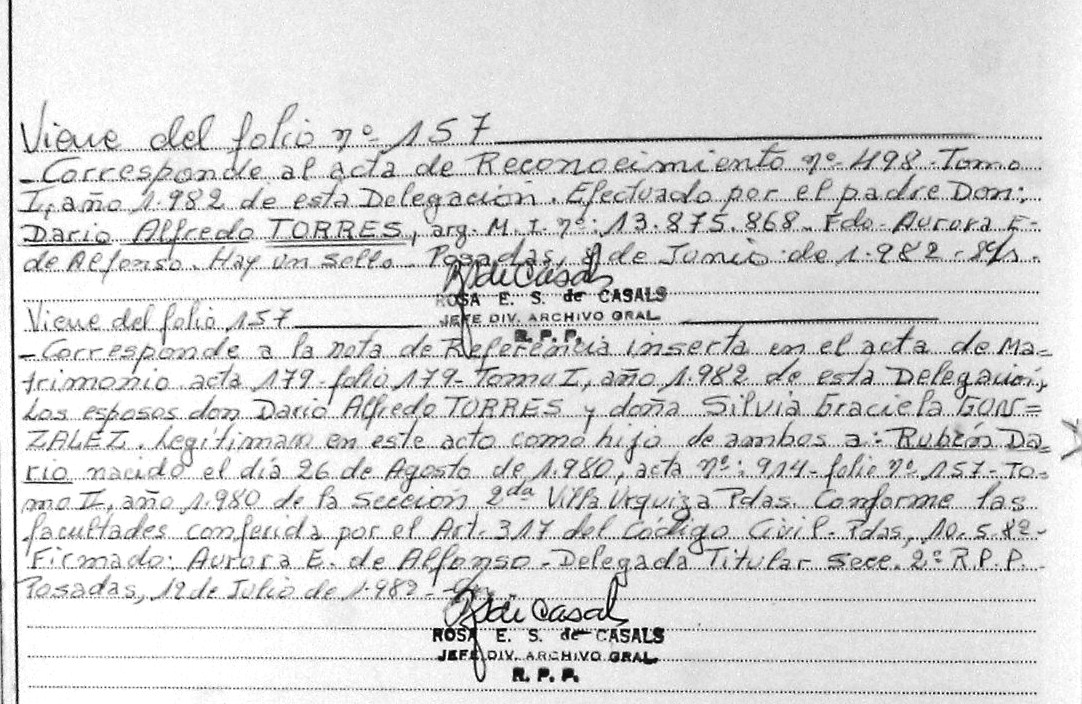 Viene del folio nº 157
- Corresponde al acta de Reconocimiento nº 498 - Tomo
I, año 1.982 de esta Delegación. Efectuado por el padre Don:
Dario Alfredo TORRES, arg. M.I. nº: 13.875.868. Fdo. Aurora E.
de Alfonso. Hay un sello. Posadas, 8 de Junio de 1.982
ROSA E. S. de CASALS
JEFE DIV. ARCHIVO GRAL.
R. P. P.
Viene del folio 157
- Corresponde a la nota de Referencia inserta en el acta de Ma=
trimonio acta 179 - folio 179 - Tomo I, año 1.982 de esta Delegación,
Los esposos don Dario Alfredo TORRES y doña Silvia Graciela GON=
ZALEZ. Legitiman en este acto como hijo de ambos a: Rubén Da=
rio nacido el día 26 de Agosto de 1.980, acta nº: 914 - folio nº 157 - To=
mo II, año 1.980 de la Sección 2da Villa Urquiza Pdas. Conforme las
facultades conferida por el Art. 317 del Código Civil - Pdas, 10.5.82 -
Firmado: Aurora E. de Alfonso - Delegada Titular Secc. 2º R.P.P.
Posadas, 12 de Julio de 1.982 -
ROSA E. S. de CASALS
JEFE DIV. ARCHIVO GRAL.
R. P. P.